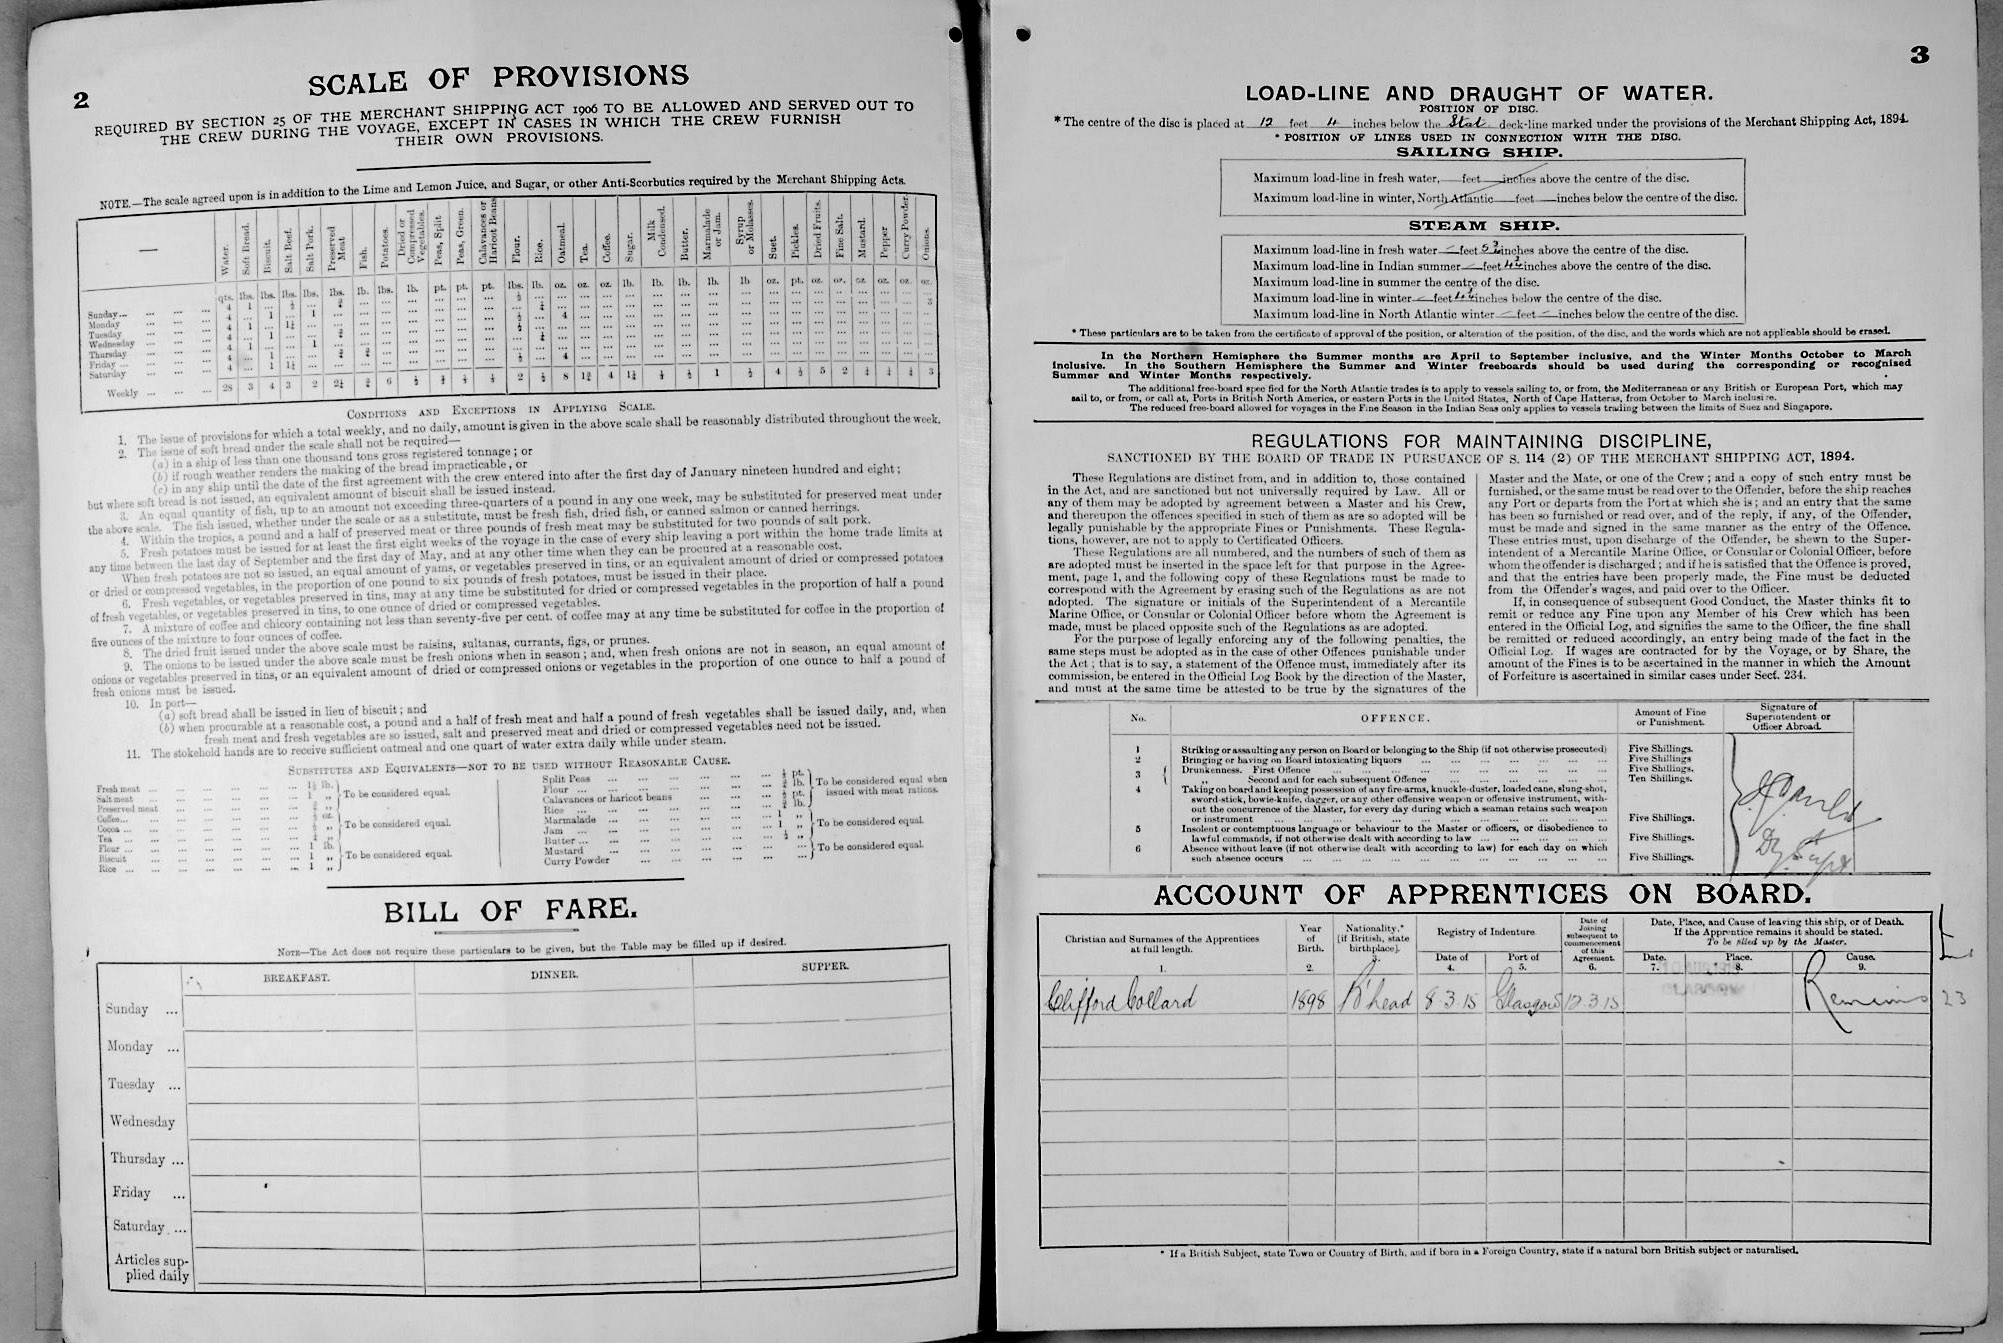 2
SCALE OF PROVISIONS
REQUIRED BY SECTION 25 OF THE MERCHANT SHIPPING ACT 1906 TO BE ALLOWED AND SERVED OUT TO
THE CREW DURING THE VOYAGE, EXCEPT IN CASES IN WHICH THE CREW FURNISH
THEIR OWN PROVISIONS.
NOTE.—The scale agreed upon is in addition to the Lime and Lemon Juice, and Sugar, or other Anti-Scorbutics required by the Merchant Shipping Acts.
— Water. Soft Bread. Biscuit. Salt Beef. Salt Pork. Preserved Meat Fish. Potatoes. Dried or Compressed Vegetables. Peas, Split Peas, Green. Calavances or Haricot Beans Flour. Rice. Oatmeal. Tea. Coffee. Sugar. Milk Condensed. Butter. Marmalade or Jam. Syrup or Molasses. Suet. Pickles. Dried Fruits. Fine Salt. Mustard. Pepper Curry Powder. Onions.
qts. lbs. lbs. lbs. lbs. lbs. lb. lbs. lb. pt. pt. pt. lbs. lb. oz. oz. oz. lb. lb. lb. lb. lb oz. pt. oz. oz. oz. oz. oz. oz.
Sunday...
Monday
Tuesday
Wednesday
Thursday
Friday ...
Saturday
Weekly ... 28 3 4 3 2 2¼ ¾ 6 ½ ⅔ ⅓ ⅓ 2 ½ 8 1¾ 4 1¼ ⅓ ½ 1 ½ 4 ½ 5 2 ¼ ¼ ¼ 3
CONDITIONS AND EXCEPTIONS IN APPLYING SCALE.
1. The issue of provisions for which a total weekly, and no daily, amount is given in the above scale shall be reasonably distributed throughout the week.
2. The issue of soft bread under the scale shall not be required—
(a) in a ship of less than one thousand tons gross registered tonnage; or
(b) if rough weather renders the making of the bread impracticable, or
(c) in any ship until the date of the first agreement with the crew entered into after the first day of January nineteen hundred and eight;
but where soft bread is not issued, an equivalent amount of biscuit shall be issued instead.
3. An equal quantity of fish, up to an amount not exceeding three-quarters of a pound in any one week, may be substituted for preserved meat under
the above scale. The fish issued, whether under the scale or as a substitute, must be fresh fish, dried fish, or canned salmon or canned herrings.
4. Within the tropics, a pound and a half of preserved meat or three pounds of fresh meat may be substituted for two pounds of salt pork.
5. Fresh potatoes must be issued for at least the first eight weeks of the voyage in the case of every ship leaving a port within the home trade limits at
any time between the last day of September and the first day of May, and at any other time when they can be procured at a reasonable cost.
When fresh potatoes are not so issued, an equal amount of yams, or vegetables preserved in tins, or an equivalent amount of dried or compressed potatoes
or dried or compressed vegetables, in the proportion of one pound to six pounds of fresh potatoes, must be issued in their place.
6. Fresh vegetables, or vegetables preserved in tins, may at any time be substituted for dried or compressed vegetables in the proportion of half a pound
of fresh vegetables, or vegetables preserved in tins, to one ounce of dried or compressed vegetables.
7. A mixture of coffee and chicory containing not less than seventy-five per cent. of coffee may at any time be substituted for coffee in the proportion of
five ounces of the mixture to four ounces of coffee.
8. The dried fruit issued under the above scale must be raisins, sultanas, currants, figs, or prunes.
9. The onions to be issued under the above scale must be fresh onions when in season; and, when fresh onions are not in season, an equal amount of
onions or vegetables preserved in tins, or an equivalent amount of dried or compressed onions or vegetables in the proportion of one ounce to half a pound of
fresh onions must be issued.
10. In port—
(a) soft bread shall be issued in lieu of biscuit; and
(b) when procurable at a reasonable cost, a pound and a half of fresh meat and half a pound of fresh vegetables shall be issued daily, and, when
fresh meat and fresh vegetables are so issued, salt and preserved meat and dried or compressed vegetables need not be issued.
11. The stokehold hands are to receive sufficient oatmeal and one quart of water extra daily while under steam.
SUBSTITUTES AND EQUIVALENTS—NOT TO BE USED WITHOUT REASONABLE CAUSE.
Fresh meat ... 1½ lb.
Salt meat ... 1 „
Preserved meat ... ¾ „
To be considered equal.
Coffee... ½ oz.
Cocoa ... ½ „
Tea ... ¼ „
To be considered equal.
Flour ... 1 lb.
Biscuit ... 1 „
Rice ... 1 „
To be considered equal.
Split Peas
Flour ...
Calavances or haricot beans
Rice ...
To be considered equal when
issued with meat rations.
Marmalade ... 1 „
Jam ... 1 „
Butter ... ½ „
To be considered equal.
Mustard
Curry Powder
To be considered equal.
BILL OF FARE.
NOTE—The Act does not require these particulars to be given, but the Table may be filled up if desired.
BREAKFAST. DINNER. SUPPER.
Sunday ...
Monday ...
Tuesday ...
Wednesday
Thursday ...
Friday ...
Saturday ...
Articles sup-
plied daily
3
LOAD-LINE AND DRAUGHT OF WATER.
POSITION OF DISC.
* The centre of the disc is placed at 12 feet 4 inches below the Stat. deck-line marked under the provisions of the Merchant Shipping Act, 1894.
* POSITION OF LINES USED IN CONNECTION WITH THE DISC.
SAILING SHIP.
Maximum load-line in fresh water, feet inches above the centre of the disc.
Maximum load-line in winter, North Atlantic feet inches below the centre of the disc.
STEAM SHIP.
Maximum load-line in fresh water — feet 5¾ inches above the centre of the disc.
Maximum load-line in Indian summer — feet 4¾ inches above the centre of the disc.
Maximum load-line in summer the centre of the disc.
Maximum load-line in winter — feet 4¾ inches below the centre of the disc.
Maximum load-line in North Atlantic winter — feet — inches below the centre of the disc.
* These particulars are to be taken from the certificate of approval of the position, or alteration of the position, of the disc, and the words which are not applicable should be erased.
In the Northern Hemisphere the Summer months are April to September inclusive, and the Winter Months October to March
inclusive. In the Southern Hemisphere the Summer and Winter freeboards should be used during the corresponding or recognised
Summer and Winter Months respectively.
The additional free-board specified for the North Atlantic trades is to apply to vessels sailing to, or from, the Mediterranean or any British or European Port, which may
sail to, or from, or call at, Ports in British North America, or eastern Ports in the United States, North of Cape Hatteras, from October to March inclusive.
The reduced free-board allowed for voyages in the Fine Season in the Indian Seas only applies to vessels trading between the limits of Suez and Singapore.
REGULATIONS FOR MAINTAINING DISCIPLINE,
SANCTIONED BY THE BOARD OF TRADE IN PURSUANCE OF S. 114 (2) OF THE MERCHANT SHIPPING ACT, 1894.
These Regulations are distinct from, and in addition to, those contained
in the Act, and are sanctioned but not universally required by Law. All or
any of them may be adopted by agreement between a Master and his Crew,
and thereupon the offences specified in such of them as are so adopted will be
legally punishable by the appropriate Fines or Punishments. These Regula-
tions, however, are not to apply to Certificated Officers.
These Regulations are all numbered, and the numbers of such of them as
are adopted must be inserted in the space left for that purpose in the Agree-
ment, page 1, and the following copy of these Regulations must be made to
correspond with the Agreement by erasing such of the Regulations as are not
adopted. The signature or initials of the Superintendent of a Mercantile
Marine Office, or Consular or Colonial Officer before whom the Agreement is
made, must be placed opposite such of the Regulations as are adopted.
For the purpose of legally enforcing any of the following penalties, the
same steps must be adopted as in the case of other Offences punishable under
the Act; that is to say, a statement of the Offence must, immediately after its
commission, be entered in the Official Log Book by the direction of the Master,
and must at the same time be attested to be true by the signatures of the
Master and the Mate, or one of the Crew; and a copy of such entry must be
furnished, or the same must be read over to the Offender, before the ship reaches
any Port or departs from the Port at which she is; and an entry that the same
has been so furnished or read over, and of the reply, if any, of the Offender,
must be made and signed in the same manner as the entry of the Offence.
These entries must, upon discharge of the Offender, be shewn to the Super-
intendent of a Mercantile Marine Office, or Consular or Colonial Officer, before
whom the offender is discharged; and if he is satisfied that the Offence is proved,
and that the entries have been properly made, the Fine must be deducted
from the Offender's wages, and paid over to the Officer.
If, in consequence of subsequent Good Conduct, the Master thinks fit to
remit or reduce any Fine upon any Member of his Crew which has been
entered in the Official Log, and signifies the same to the Officer, the fine shall
be remitted or reduced accordingly, an entry being made of the fact in the
Official Log. If wages are contracted for by the Voyage, or by Share, the
amount of the Fines is to be ascertained in the manner in which the Amount
of Forfeiture is ascertained in similar cases under Sect. 234.
No. OFFENCE. Amount of Fine or Punishment. Signature of Superintendent or Officer Abroad.
1 Striking or assaulting any person on Board or belonging to the Ship (if not otherwise prosecuted) Five Shillings.
2 Bringing or having on Board intoxicating liquors ... Five Shillings.
3 Drunkenness. First Offence ... Five Shillings.
„ Second and for each subsequent Offence ... Ten Shillings.
4 Taking on board and keeping possession of any fire-arms, knuckle-duster, loaded cane, slung-shot,
sword-stick, bowie-knife, dagger, or any other offensive weapon or offensive instrument, with-
out the concurrence of the Master, for every day during which a seaman retains such weapon
or instrument ... Five Shillings.
5 Insolent or contemptuous language or behaviour to the Master or officers, or disobedience to
lawful commands, if not otherwise dealt with according to law ... Five Shillings.
6 Absence without leave (if not otherwise dealt with according to law) for each day on which
such absence occurs ... Five Shillings.
Dy. Supt
ACCOUNT OF APPRENTICES ON BOARD.
Christian and Surnames of the Apprentices at full length. 1.
Year of Birth. 2.
Nationality.* [if British, state birthplace]. 3.
Registry of Indenture. Date of 4. Port of 5.
Date of Joining subsequent to commencement of this Agreement. 6.
Date, Place, and Cause of leaving this ship, or of Death.
If the Apprentice remains it should be stated.
To be filled up by the Master.
Date. 7. Place. 8. Cause. 9.
Clifford Collard 1898 B'head 8.3.15 Glasgow 12.3.15 Remains 23
* If a British Subject, state Town or Country of Birth, and if born in a Foreign Country, state if a natural born British subject or naturalised.